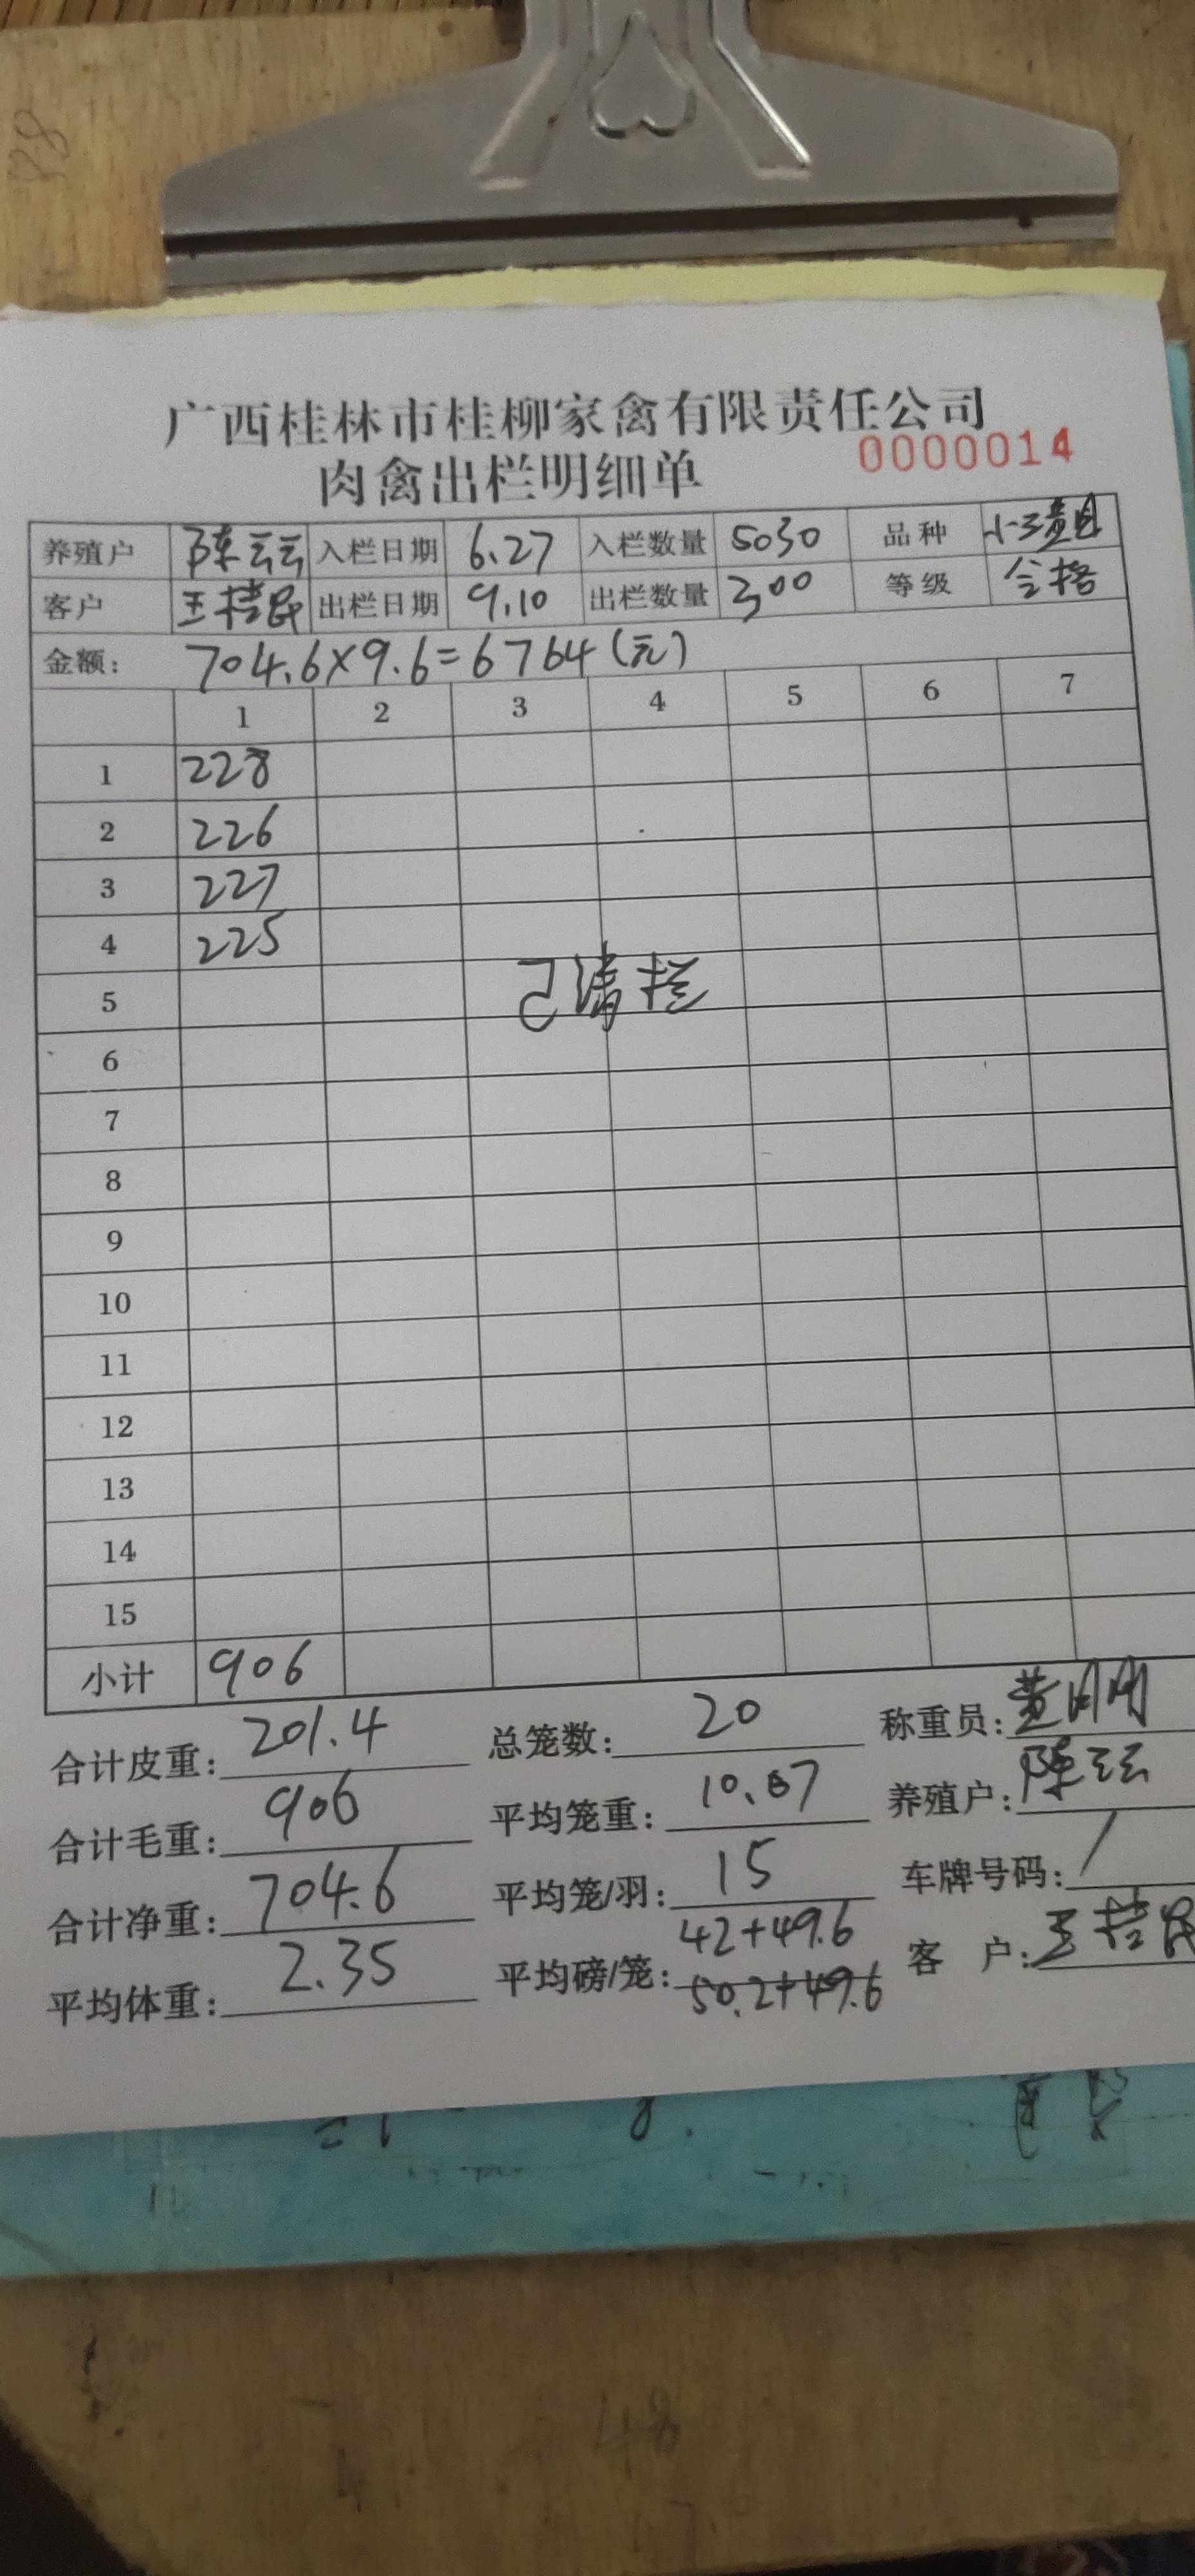 广西桂林市桂柳家禽有限责任公司
肉禽出栏明细单 0000014
养殖户 陈云云 入栏日期 6.27 入栏数量 5030 品种
客户 出栏日期 9.10 出栏数量 300 等级 合格
金额: 704.6×9.6=6764(元)
1 2 3 4 5 6 7
1 228
2 226
3 227
4 225
已清栏
5
6
7
8
9
10
11
12
13
14
15
小计 906
合计皮重: 201.4 总笼数: 20 称重员:
合计毛重: 906 平均笼重: 10.07 养殖户: 陈云云
合计净重: 704.6 平均笼/羽: 15 车牌号码: /
平均体重: 2.35 平均磅/笼: 42+49.6 客 户:
50.2+49.6